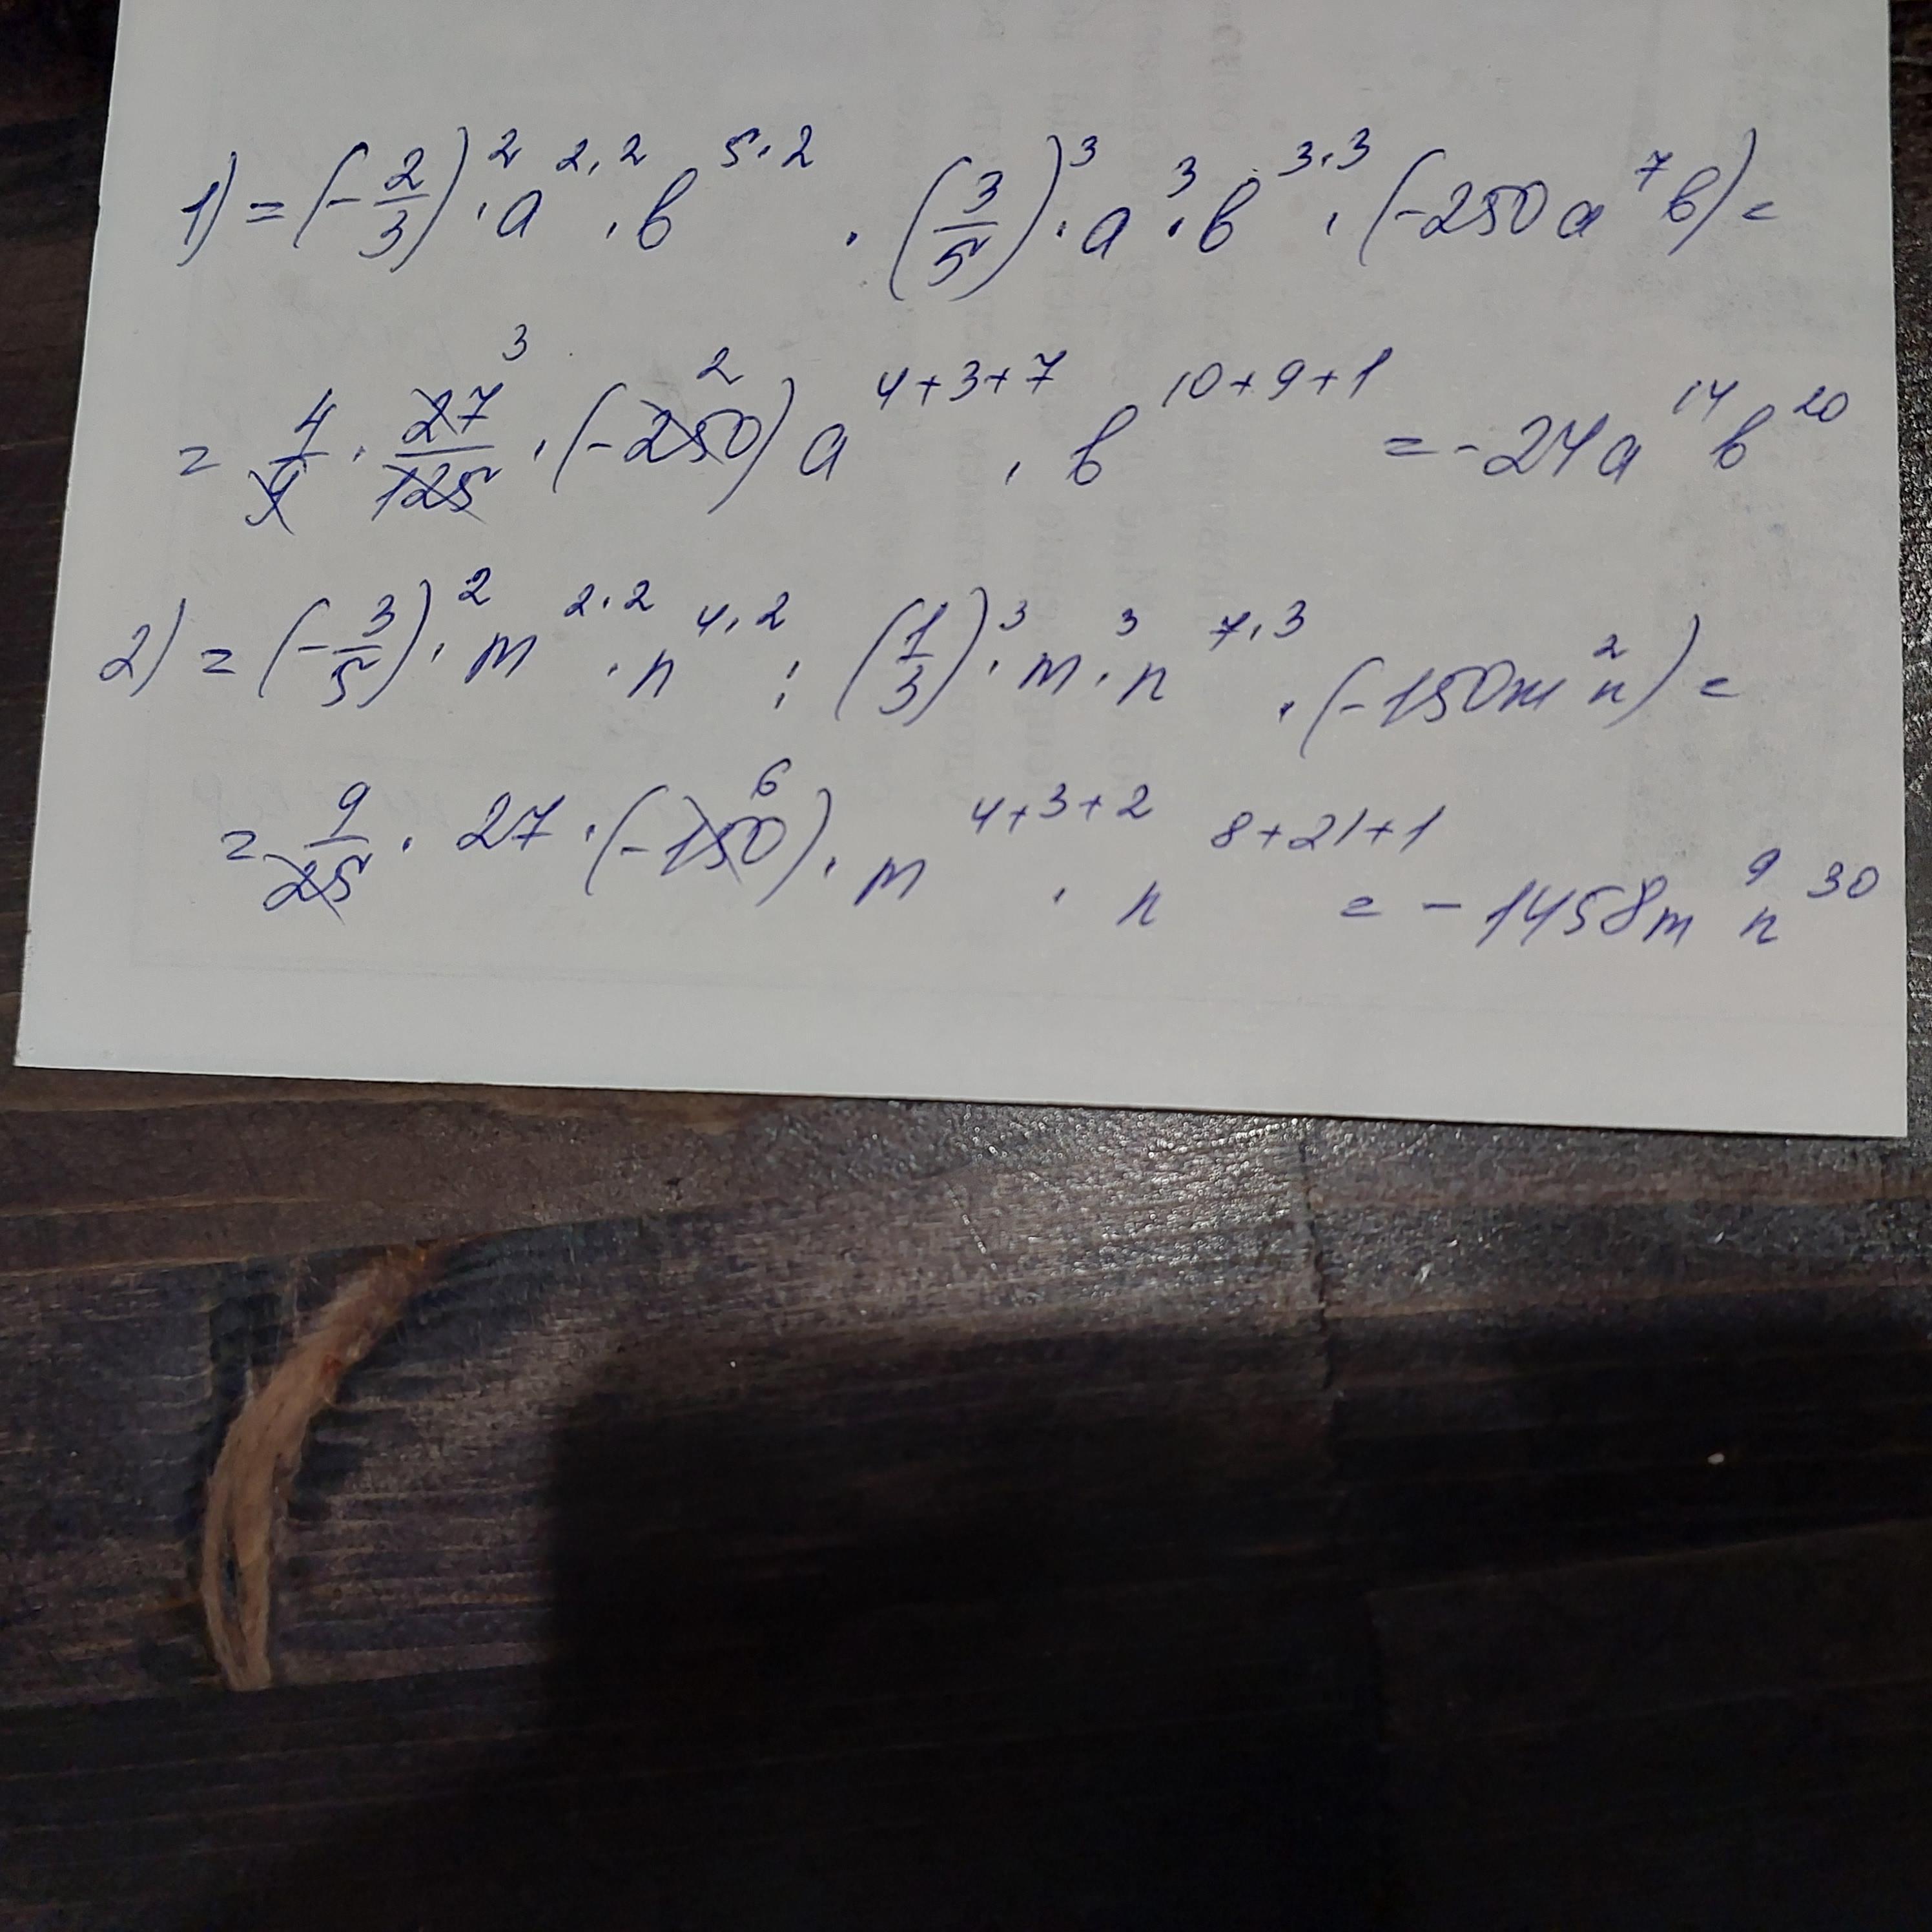 1) = (-2/3)² · a^2·2 · b^5·2 · (3/5)³ · a³ · b^3·3 · (-250a⁷b) =
= 4/9 · 27/125 ³ · (-250) ² a^4+3+7 · b^10+9+1 = -24a¹⁴b²⁰
2) = (-3/5)² · m^2·2 · n^4·2 : (1/3)³ · m³ · n^7·3 · (-150m²n) =
= 9/25 · 27 · (-150) ⁶ · m^4+3+2 · n^8+21+1 = -1458m⁹n³⁰